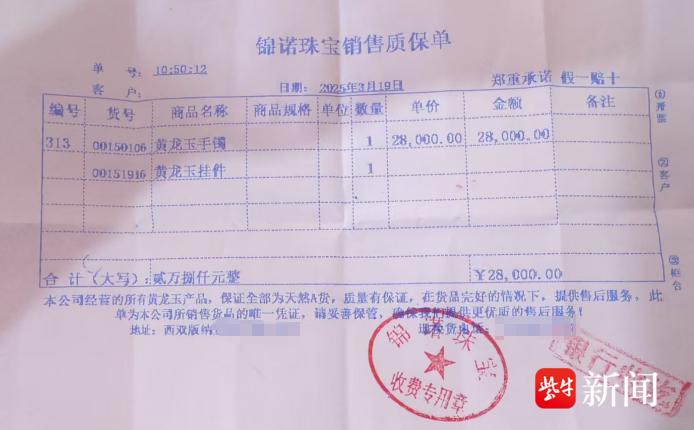 锦诺珠宝销售质保单
单 号: 10:50:12
客 户: 日期: 2025年3月19日 郑重承诺 假一赔十
编号 货号 商品名称 商品规格 单位 数量 单价 金额 备注
313 00150106 黄龙玉手镯 1 28,000.00 28,000.00
00151916 黄龙玉挂件 1
合 计 (大写): 贰万捌仟元整 ¥28,000.00
②客户
③柜台
本公司经营的所有黄龙玉产品, 保证全部为天然A货, 质量有保证, 在货品完好的情况下, 提供售后服务, 此
单为本公司所销售货品的唯一凭证, 请妥善保管, 确保我们提供更优质的售后服务!
地址: 西双版纳
电话:
锦诺珠宝
收费专用章
银行
紫牛新闻